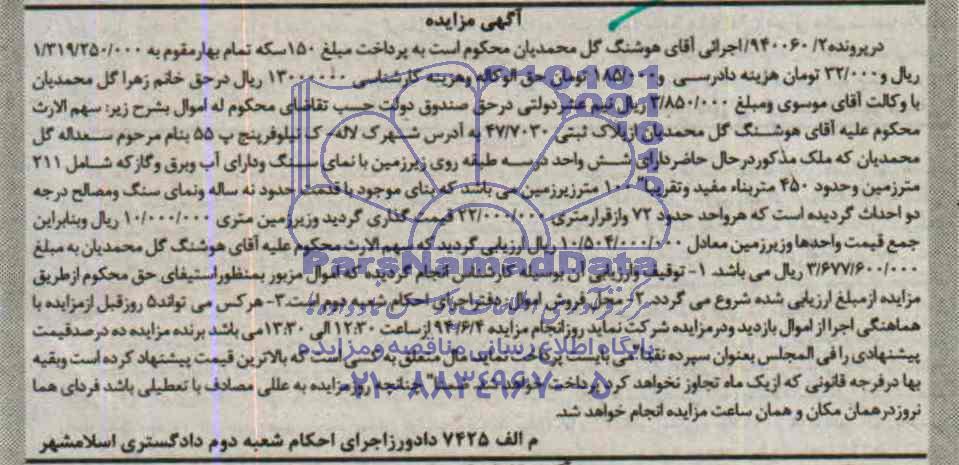 آگهی مزایده
درپرونده۹۴۰۰۶۰/۲/اجرائی آقای هوشنگ گل محمدیان محکوم است به پرداخت مبلغ ۱۵۰سکه تمام بهارمقوم به ۱/۳۱۹/۲۵۰/۰۰۰
ریال و۳۲/۰۰۰ تومان هزینه دادرسی و۱۸۵/۰۰۰ تومان حق الوکاله وهزینه کارشناسی ۱۳۰۰۰۰۰۰ ریال درحق خانم زهرا گل محمدیان
با وکالت آقای موسوی ومبلغ ۳/۸۵۰/۰۰۰ ریال نیم عشردولتی درحق صندوق دولت حسب تقاضای محکوم له اموال بشرح زیر: سهم الارث
محکوم علیه آقای هوشنگ گل محمدیان ازپلاک ثبتی ۴۷/۷۰۳۰ به آدرس شهرک لاله- ک نیلوفرپنج پ ۵۵ بنام مرحوم سعداله گل
محمدیان که ملک مذکوردرحال حاضردارای شش واحد درسه طبقه روی زیرزمین با نمای سنگ ودارای آب وبرق وگازکه شامل ۲۱۱
مترزمین وحدود ۴۵۰ متربناء مفید وتقریبا" ۱۰۰ مترزیرزمین می باشد که بنای موجود با قدمت حدود نه ساله ونمای سنگ ومصالح درجه
دو احداث گردیده است که هرواحد حدود ۷۲ وازقرارمتری ۲۲/۰۰۰/۰۰۰ قیمت گذاری گردید وزیرزمین متری ۱۰/۰۰۰/۰۰۰ ریال وبنابراین
جمع قیمت واحدها وزیرزمین معادل ۱۰/۵۰۴/۰۰۰/۰۰۰ ریال ارزیابی گردید که سهم الارث محکوم علیه آقای هوشنگ گل محمدیان به مبلغ
۳/۶۷۷/۶۰۰/۰۰۰ ریال می باشد. ۱- توقیف وارزیابی آن بوسیله کارشناس انجام گردیده که اموال مزبور بمنظوراستیفای حق محکوم ازطریق
مزایده ازمبلغ ارزیابی شده شروع می گردد. ۲- محل فروش اموال: دفتراجرای احکام شعبه دوم است.۳-هرکس می تواند۵ روزقبل ازمزایده با
هماهنگی اجرا از اموال بازدید ودرمزایده شرکت نماید روزانجام مزایده ۹۴/۶/۴ ازساعت ۱۲:۳۰ الی ۱۳:۳۰می باشد برنده مزایده ده درصدقیمت
پیشنهادی را فی المجلس بعنوان سپرده نقدا" می بایست پرداخت نماید مال متعلق به کسی است که بالاترین قیمت پیشنهاد کرده است وبقیه
بها درفرجه قانونی که ازیک ماه تجاوز نخواهد کرد پرداخت خواهد شد ضمنا" چنانچه روزمزایده به عللی مصادف با تعطیلی باشد فردای هما
نروزدرهمان مکان و همان ساعت مزایده انجام خواهد شد.
م الف ۷۴۲۵ دادورزاجرای احکام شعبه دوم دادگستری اسلامشهر
ParsNamadData
پایگاه اطلاع رسانی مناقصه و مزایده
۰۲۱-۸۸۳۴۹۶۷۰-۵